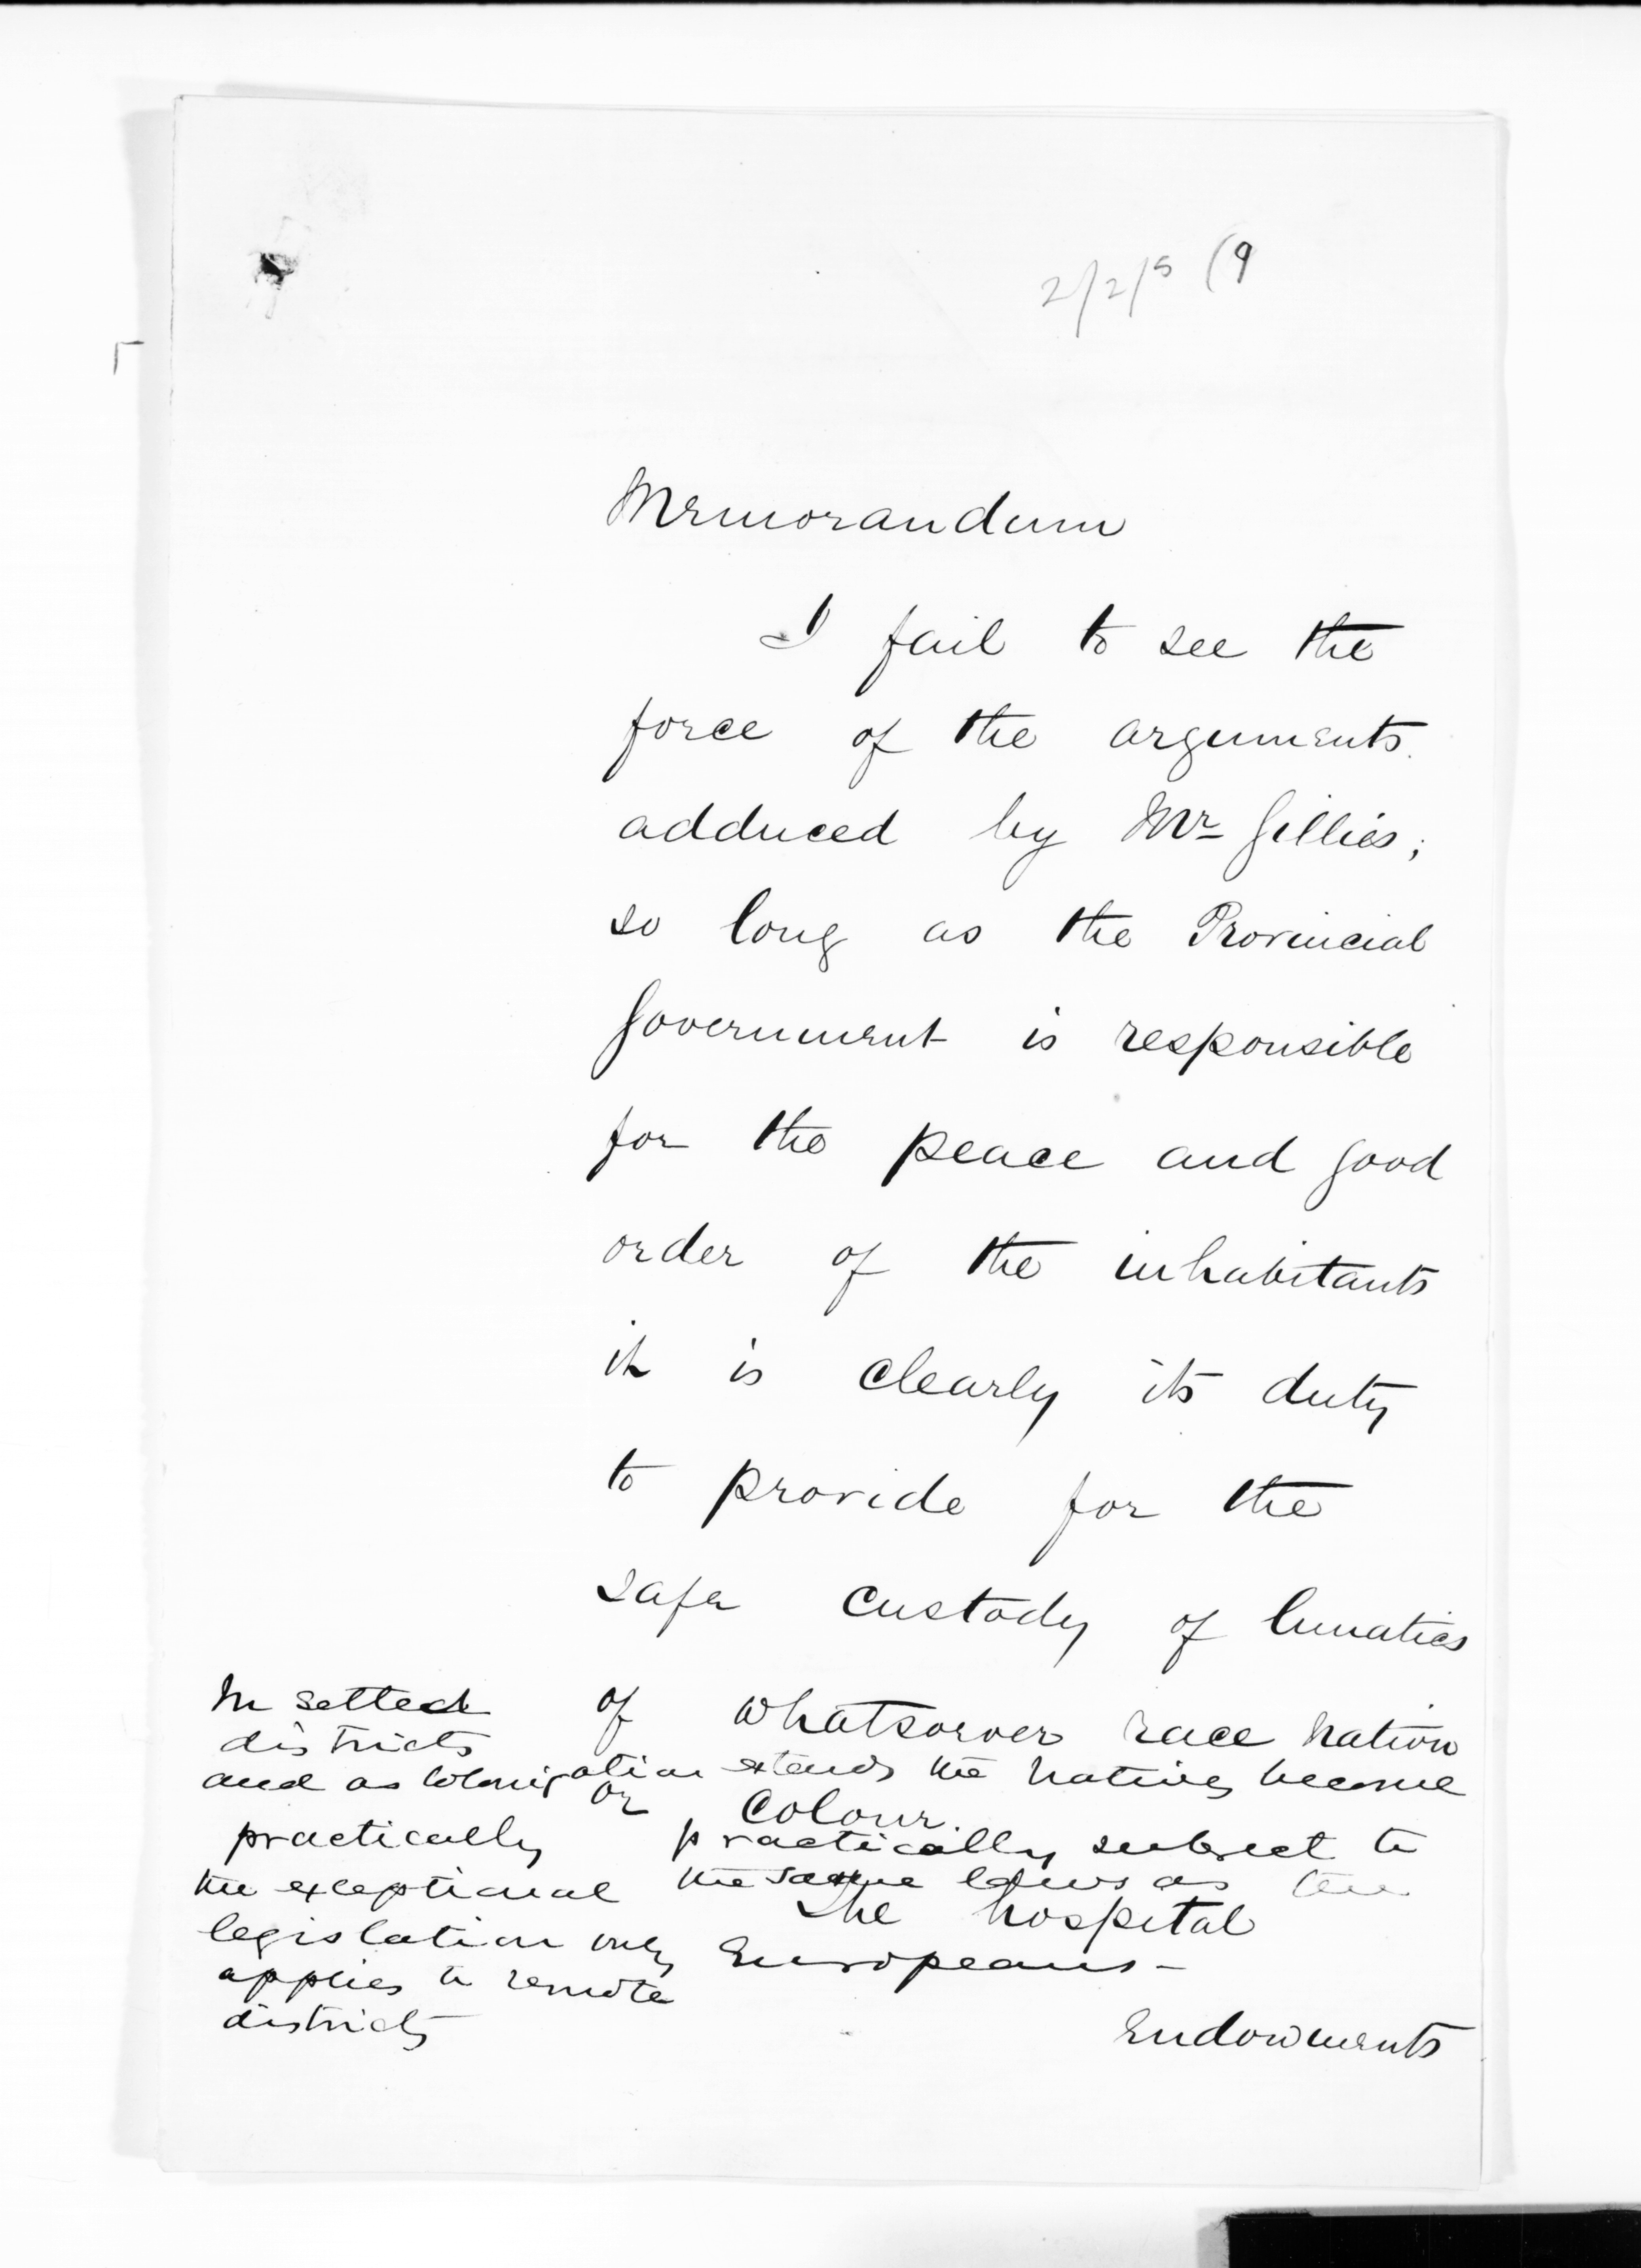 2/2/5 (9
Memorandum
I fail to see the
force of the arguments
adduced by Mr Gillies;
so long as the Provincial
Government is responsible
for the peace and good
order of the inhabitants
it is clearly its duty
to provide for the
safe custody of lunatics
of whatsoever race nation
or Colour.
The hospital
Endowments
In setted
districts
and as colonization extends the natives become
practically practically subject to
the exceptional the same laws as the
legislation only Europeans -
applies to remote
districts